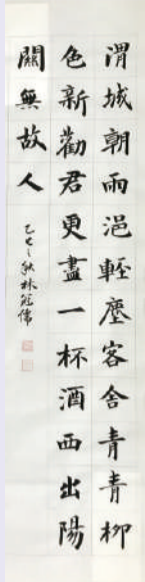 渭城朝雨浥輕塵客舍青青柳
色新勸君更盡一杯酒西出陽
關無故人